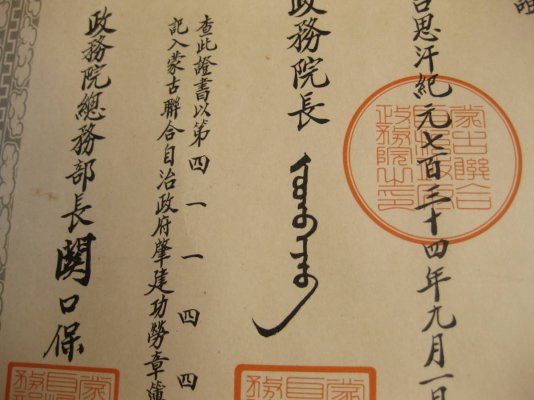 吉思汗紀元七百三十四年九月一日
蒙古聯合
自治政府
政務院之印
政務院長
查此證書以第四一一四四
記入蒙古聯合自治政府肇建功勞章簿
政務院總務部長 関口保